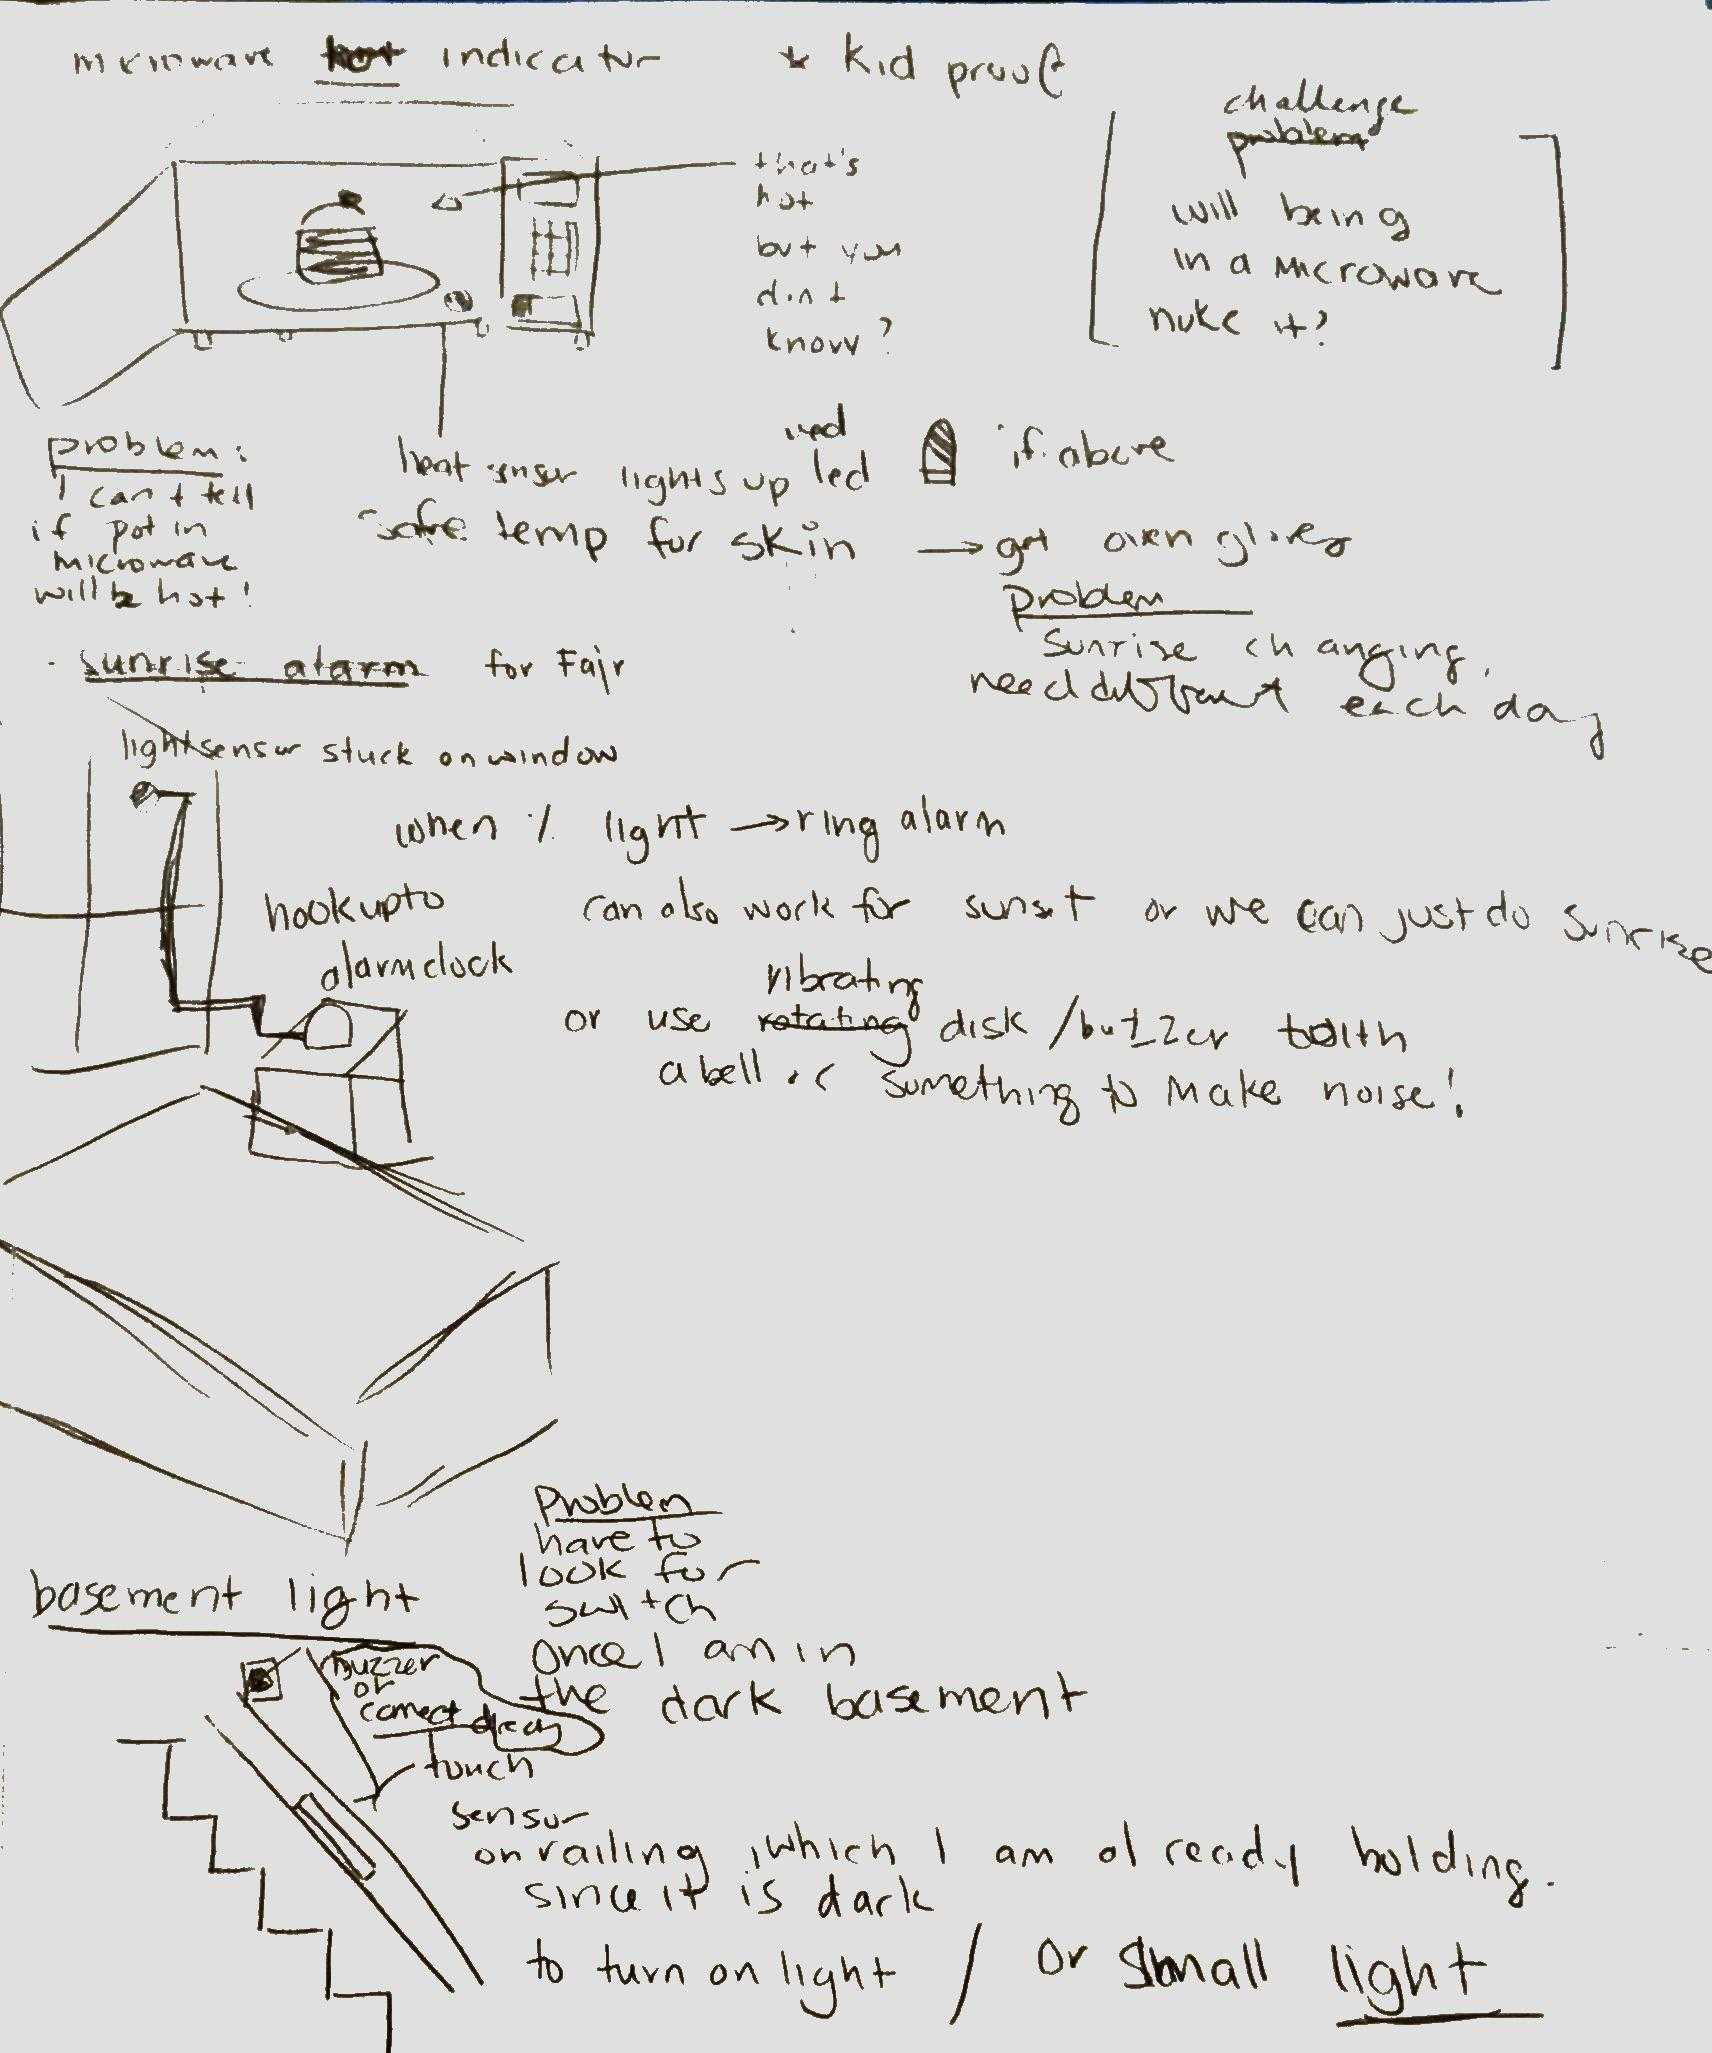 microwave hot indicator * kid proof
challenge
problem
will being
in a microwave
nuke it?
that's
hot
but you
dint
know?
problem:
I can't tell
if pot in
microwave
will be hot!
red
heat sensor lights up led if above
safe temp for skin → get oven gloves
problem
sunrise changing,
need different each day
sunrise alarm for Fajr
light sensor stuck on window
when % light → ring alarm
hook up to
alarm clock
can also work for sunset or we can just do sunrise
vibrating
or use rotating disk / buzzer with
a bell or something to make noise!
basement light
Problem
have to
look for
switch
once I am in
the dark basement
buzzer
or
connect
touch
sensor
on railing, which I am already holding.
since it is dark
to turn on light / or small light